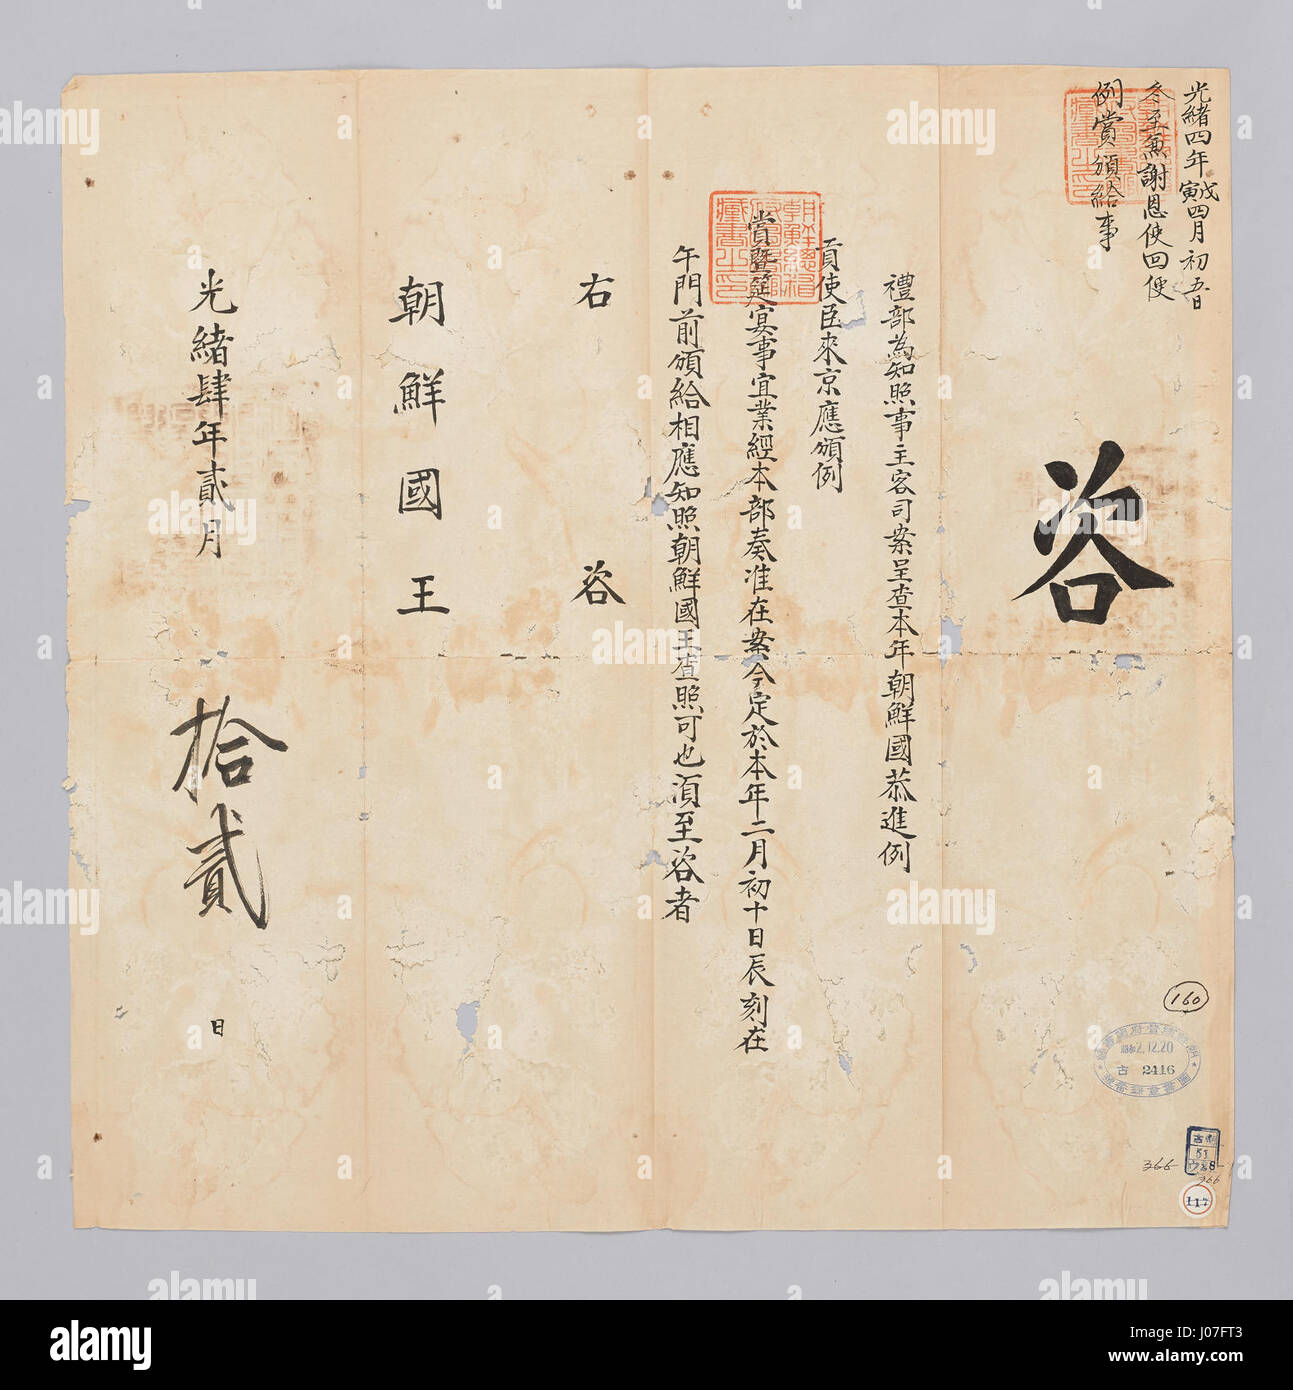 光緒四年戊寅四月初五日
冬至兼謝恩使回便
例賞頒給事
咨
禮部為知照事主客司案呈查本年朝鮮國恭進例
貢使臣來京應頒例
賞暨筵宴事宜業經本部奏准在案今定於本年二月初十日辰刻在
午門前頒給相應知照朝鮮國王查照可也須至咨者
右咨
朝鮮國王
光緒肆年貳月拾貳日
朝鮮總督府圖書之印
160
2.12.20
古 2416
51
366
366
117
alamy
Image ID: J07FT3
www.alamy.com